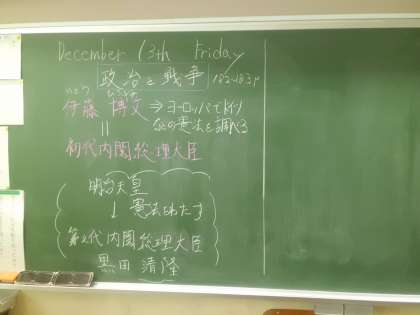 December 13th Friday
政治と戦争 182-183p
いとう ひろぶみ
伊藤 博文 ⇒ ヨーロッパでドイツ
などの憲法を調べる
||
初代内閣総理大臣
明治天皇
↓ 憲法をわたす
第2代内閣総理大臣
黒田 清隆